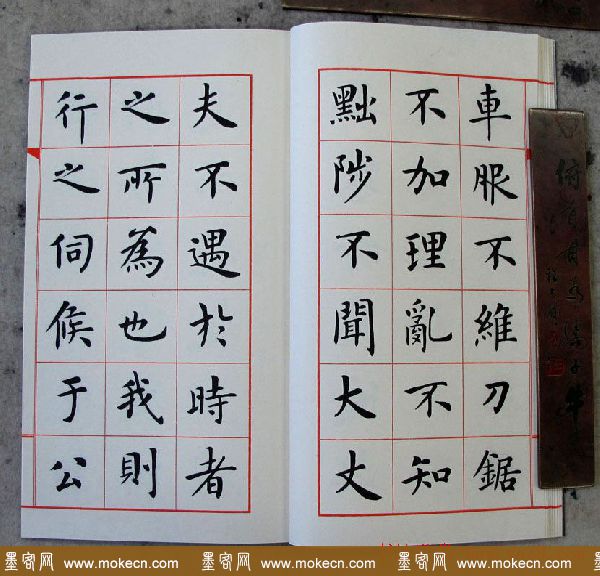 車服不維刀鋸
不加理亂不知
黜陟不聞大丈
夫不遇於時者
之所為也我則
行之伺候于公
俯首甘為孺子牛
墨客网 www.mokecn.com 墨客网 www.mokecn.com 墨客网 www.mokecn.com